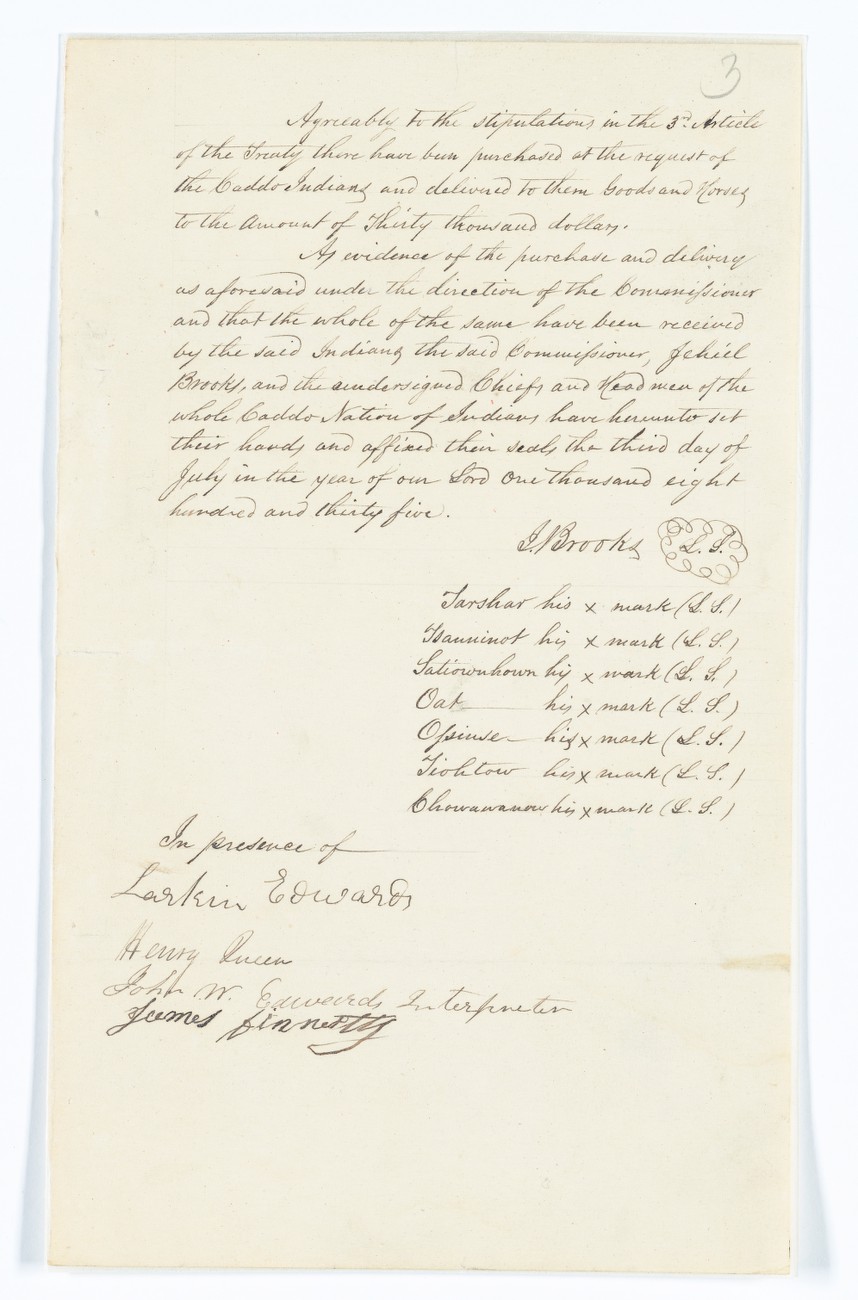 3
Agreeably to the stipulations in the 3d. Article
of the Treaty there have been purchased at the request of
the Caddo Indians and delivered to them Goods and Horses
to the Amount of Thirty thousand dollars.
As evidence of the purchase and delivery
as aforesaid under the direction of the Commissioner
and that the whole of the same have been received
by the said Indians, the said Commissioner, Jehiel
Brooks, and the undersigned Chiefs and Head men of the
whole Caddo Nation of Indians have hereunto set
their hands and affixed their seals the third day of
July in the year of our Lord One thousand eight
hundred and thirty five.
J. Brooks L. S.
Tarshar his x mark (L. S.)
Tsauninot his x mark (L. S.)
Satiownhown his x mark (L. S.)
Oat his x mark (L. S.)
Ossinse his x mark (L. S.)
Tiohtow his x mark (L. S.)
Chowawanow his x mark (L. S.)
In presence of
Larkin Edwards
Henry Queen
John W. Edwards Interpreter
James Finnerty